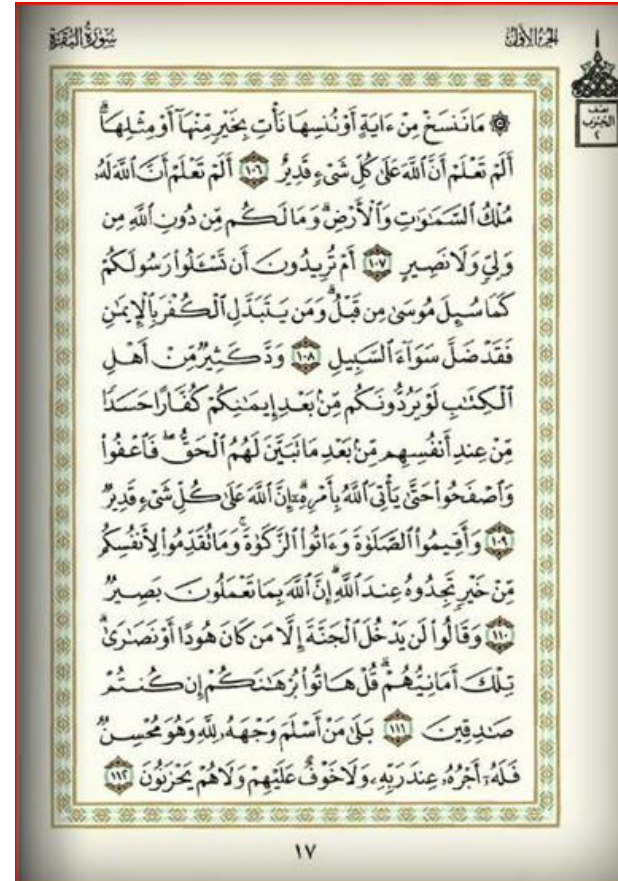 سُورَةُ البَقَرَةِ
الجُزْءُ الأَوَّلُ
نصف
الحزب
٢
۞ مَا نَنسَخْ مِنْ ءَايَةٍ أَوْ نُنسِهَا نَأْتِ بِخَيْرٍ مِّنْهَآ أَوْ مِثْلِهَآۗ
أَلَمْ تَعْلَمْ أَنَّ ٱللَّهَ عَلَىٰ كُلِّ شَىْءٍ قَدِيرٌ ١٠٦ أَلَمْ تَعْلَمْ أَنَّ ٱللَّهَ لَهُۥ
مُلْكُ ٱلسَّمَـٰوَٰتِ وَٱلْأَرْضِۗ وَمَا لَكُم مِّن دُونِ ٱللَّهِ مِن
وَلِىٍّ وَلَا نَصِيرٍ ١٠٧ أَمْ تُرِيدُونَ أَن تَسْـَٔلُوا۟ رَسُولَكُمْ
كَمَا سُئِلَ مُوسَىٰ مِن قَبْلُۗ وَمَن يَتَبَدَّلِ ٱلْكُفْرَ بِٱلْإِيمَـٰنِ
فَقَدْ ضَلَّ سَوَآءَ ٱلسَّبِيلِ ١٠٨ وَدَّ كَثِيرٌ مِّنْ أَهْلِ
ٱلْكِتَـٰبِ لَوْ يَرُدُّونَكُم مِّنۢ بَعْدِ إِيمَـٰنِكُمْ كُفَّارًا حَسَدًا
مِّنْ عِندِ أَنفُسِهِم مِّنۢ بَعْدِ مَا تَبَيَّنَ لَهُمُ ٱلْحَقُّۖ فَٱعْفُوا۟
وَٱصْفَحُوا۟ حَتَّىٰ يَأْتِىَ ٱللَّهُ بِأَمْرِهِۦٓۗ إِنَّ ٱللَّهَ عَلَىٰ كُلِّ شَىْءٍ قَدِيرٌ
١٠٩ وَأَقِيمُوا۟ ٱلصَّلَوٰةَ وَءَاتُوا۟ ٱلزَّكَوٰةَۚ وَمَا تُقَدِّمُوا۟ لِأَنفُسِكُم
مِّنْ خَيْرٍ تَجِدُوهُ عِندَ ٱللَّهِۗ إِنَّ ٱللَّهَ بِمَا تَعْمَلُونَ بَصِيرٌ
١١٠ وَقَالُوا۟ لَن يَدْخُلَ ٱلْجَنَّةَ إِلَّا مَن كَانَ هُودًا أَوْ نَصَـٰرَىٰۗ
تِلْكَ أَمَانِيُّهُمْۗ قُلْ هَاتُوا۟ بُرْهَـٰنَكُمْ إِن كُنتُمْ
صَـٰدِقِينَ ١١١ بَلَىٰ مَنْ أَسْلَمَ وَجْهَهُۥ لِلَّهِ وَهُوَ مُحْسِنٌ
فَلَهُۥٓ أَجْرُهُۥ عِندَ رَبِّهِۦ وَلَا خَوْفٌ عَلَيْهِمْ وَلَا هُمْ يَحْزَنُونَ ١١٢
١٧